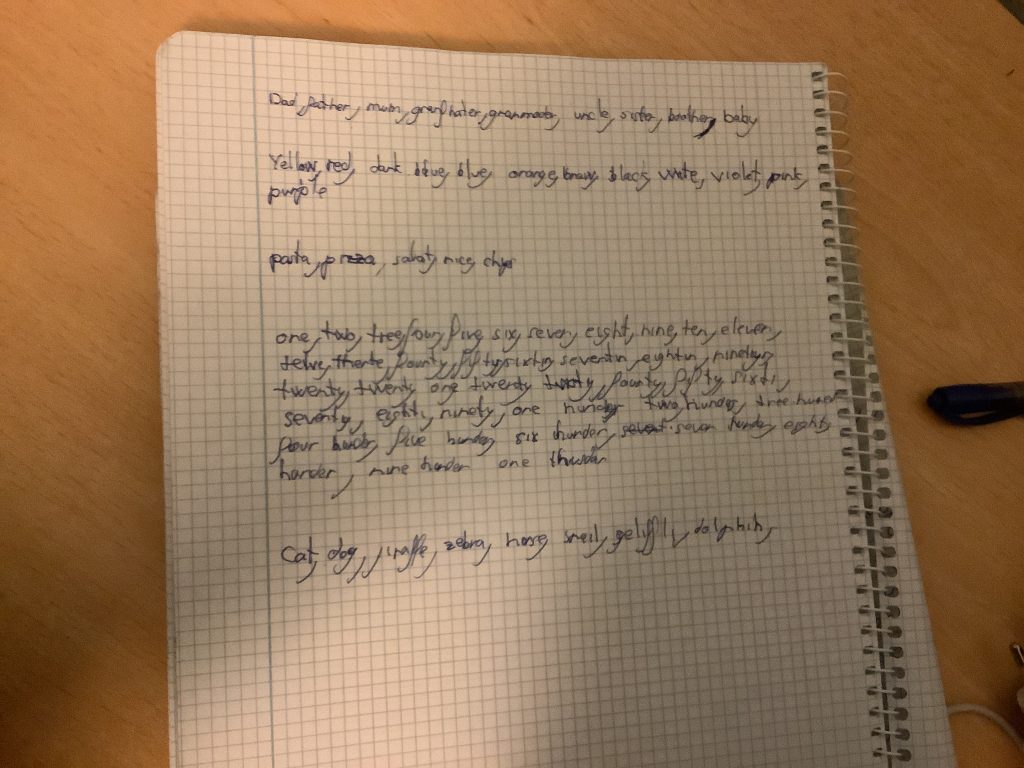 Dad, father, mum, granfhater, granmoter, uncle, sister, brother, baby
Yellow, red, dark blue, blue, orange, brawn, black, white, violet, pink,
purple
pasta, pizza, salad, rice, chips
one, two, tree, four, five, six, seven, eight, nine, ten, eleven,
telve, therte, founty, fifty, sixtin, seventin, eightin, ninetin,
twenty, twenty one twenty founty, fifty sixti,
seventy, eighti, ninety, one hunder two hunder, tree hunder
four hunder, five hunder, six hunder, seven hunder, eight
hander, nine hunder one thusdan
Cat, dog, jiraffe, zebra, horse, sneil, geliffli, dolphin,